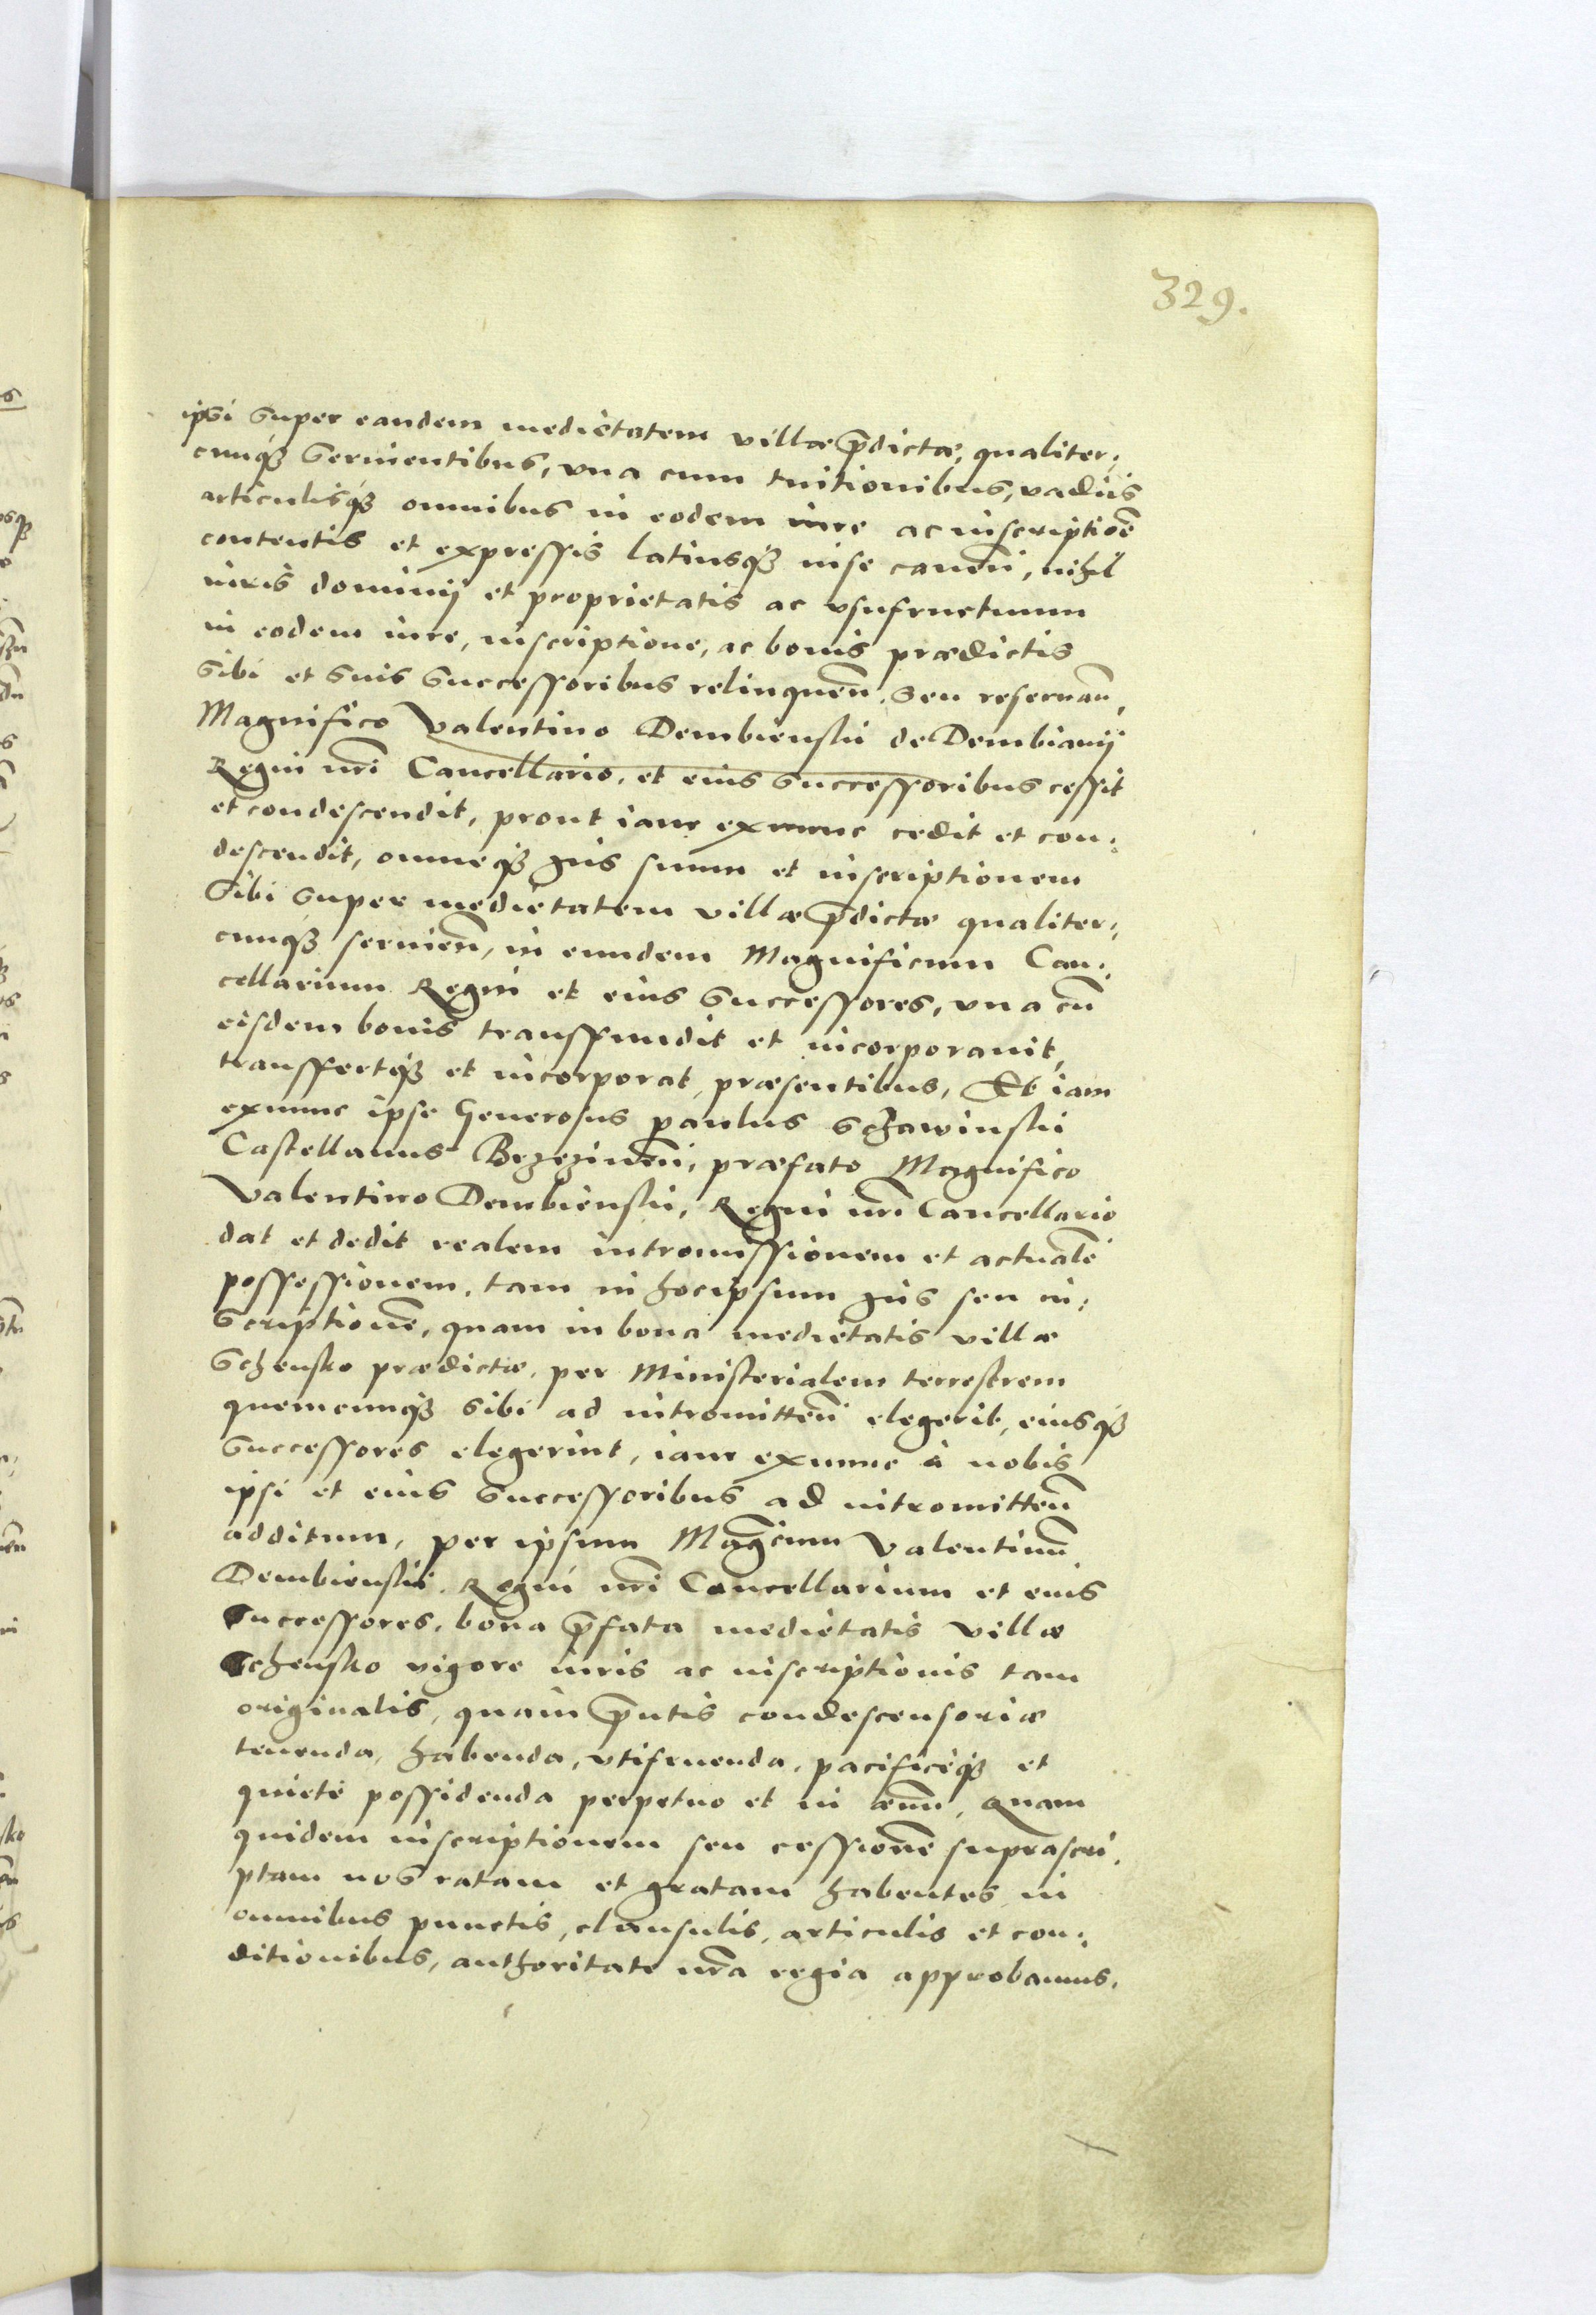 329.
ipsi super eandem medietatem villæ p̄dictæ, qualiter:
cunq̷ꝫ seruientibus, vna cum tuitionibus, vadijs
articulisqꝫ omnibus in eodem iure ac inscriptiōe
contentis et expressis latiusqꝫ in se canen̄, nihil
iuris dominij et proprietatis ac vsufructuum
in eodem iure, inscriptione, ac bonis prædictis
sibi et suis successoribus relinquen̄, seu reseruan̄,
Magnifico Valentino Dembienski de Dembiany
Regni nr̄i Cancellario, et eius successoribus cessit
et condescendit, prout iam exnunc cedit et con:
descendit, omneqꝫ jus suum et inscriptionem
sibi super medietatem villæ p̄dictæ qualiter:
cunqꝫ seruien̄, in eundem Magnificum Can:
cellarium Regni et eius successores, vna cū
eisdem bonis transffundit et incorporauit,
transffertqꝫ et incorporat præsentibus, Et iam
exnunc ipse Generosus Paulus Schawinski
Castellanus Brzezinen̄, præfato Magnifico
Valentino Dembienski, Regni nr̄i Cancellario
dat et dedit realem intromissionem et actualē
possessionem, tam in hoc ipsum jus seu in:
scriptionē, quam in bona medietatis villæ
Schensko prædictæ, per Ministerialem terrestrem
quemcunqꝫ sibi ad intromitten̄ elegerit, eiusqꝫ
successores elegerint, iam exnunc à nobis
ipsi et eius successoribus ad intromitten̄
additum, per ipsum Maḡcum Valentinū
Dembienski, Regni nr̄i Cancellarium et eius
successores, bona p̄fata medietatis villæ
Schensko vigore iuris ac inscriptionis tam
originalis, quam p̄ntis condescensoriæ
tenenda, habenda, vtifruenda, pacificèqꝫ et
quietè possidenda perpetuo et in æuū, Quam
quidem inscriptionem seu cessionē suprascri:
ptam nos ratam et gratam habentes in
omnibus punctis, clausulis, articulis et con:
ditionibus, authoritate nr̄a regia approbamus,